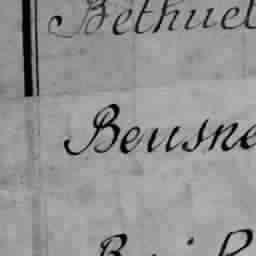 Bethuel
Beusne